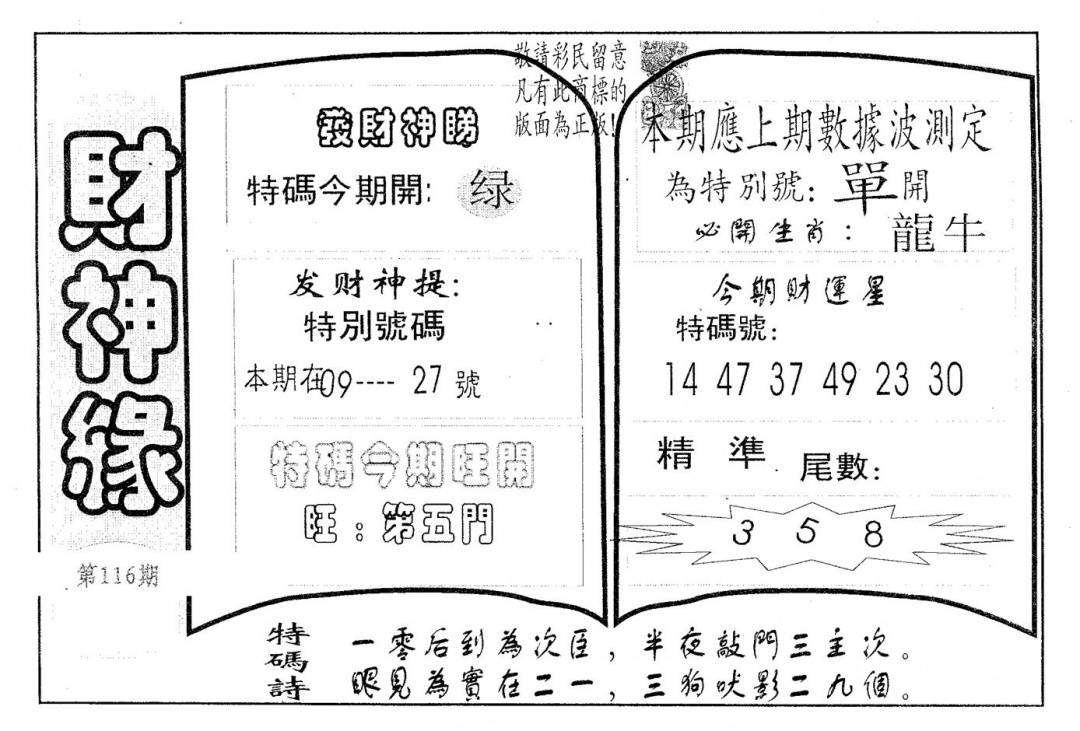 財神緣
第116期
敬請彩民留意
凡有此商標的
版面為正版!
發財神睇
特碼今期開: 绿
发财神提:
特別號碼
本期在09---- 27 號
特碼今期旺開
旺:第五門
本期應上期數據波測定
為特別號: 單開
必開生肖: 龍牛
今期財運星
特碼號:
14 47 37 49 23 30
精準 尾數:
3 5 8
特碼詩
一零后到為次臣,半夜敲門三主次。
眼見為實在二一,三狗吠影二九個。